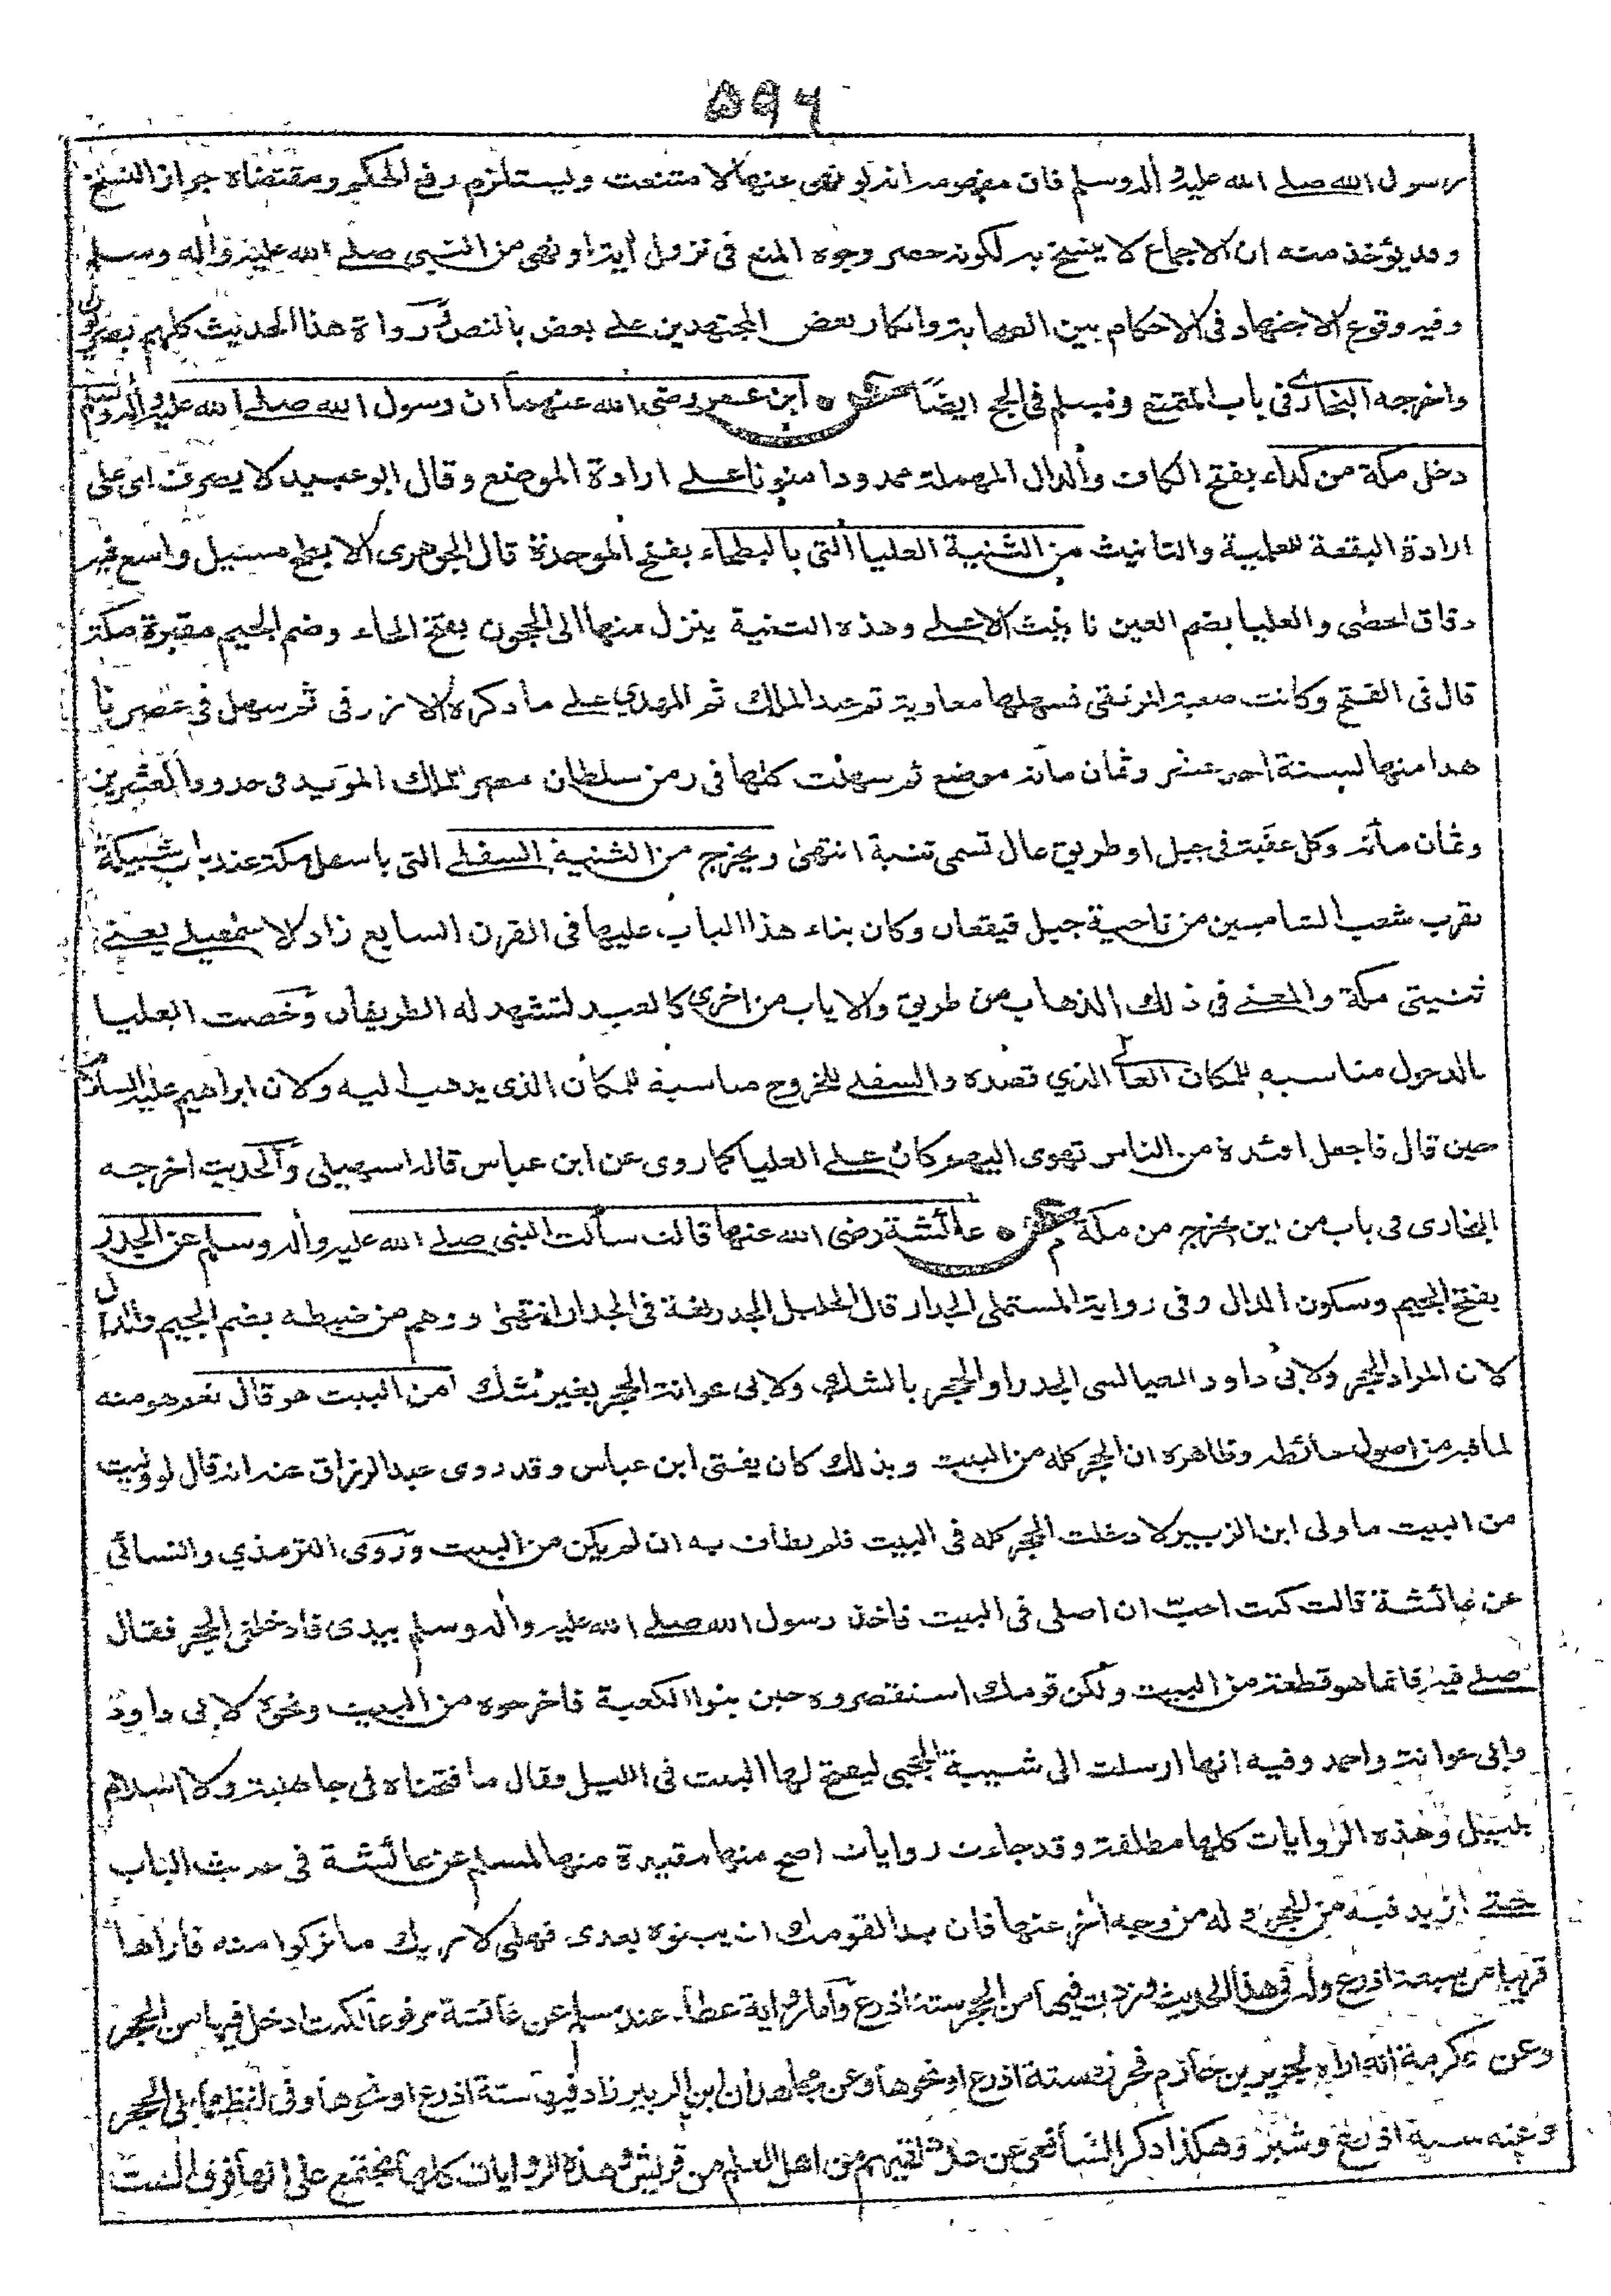 ٥٩٦
رسول الله صلے الله عليه وأله وسلم فان مفهومه انه لو نهى عنها لا متنعت ويستلزم رفع الحكم ومقتضاه جواز النسخ
وقد يؤخذ منه ان الاجماع لا ينسخ به لكونه حصر وجوه المنع فى نزول أية او نهى من النبى صلے الله عليه وأله وسلم
وفيه وقوع الاجتهاد فى الاحكام بين الصحابة وانكار بعض المجتهدين على بعض بالنص رواة هذا الحديث كلهم بصريون
واخرجه البخارى فى باب التمتع ومسلم فى الحج ايضًا عن ابن عمر رضى الله عنهما ان رسول الله صلے الله عليه وأله وسلم
دخل مكة من كداء بفتح الكاف والدال المهملة ممدودا منونا علے ارادة الموضع وقال ابو عبيد لا يصرف اى على
ارادة البقعة للعلمية والتانيث من الثنية العليا التى بالبطحاء بفتح الموحدة قال الجوهرى الابطح مسيل واسع فيه
دقاق الحصى والعليا بضم العين تانيث الاعلے وهذه الثنية ينزل منها الى الحجون بفتح الحاء وضم الجيم مقبرة مكة
قال فى الفتح وكانت صعبة المرتقى فسهلها معاوية ثم عبد الملك ثم المهدي علے ما ذكره الازرقى ثم سهل فى عصرنا
هذا منها لسنة احد عشر وثمان مائة موضع ثم سهلت كلها فى زمن سلطان مصر الملك المؤيد فى حدود العشرين
وثمان مائة وكل عقبة فى جبل او طريق عال تسمى ثنية انتهى ويخرج من الثنية السفلے التى باسفل مكة عند باب شبيكة
بقرب شعب الشاميين من ناحية جبل قيقعان وكان بناء هذا الباب عليها فى القرن السابع زاد الاسمعيلے يعنے
ثنيتى مكة والمعنے فى ذلك الذهاب من طريق والاياب من اخرى كالعيد لتشهد له الطريقان وخصت العليا
بالدخول مناسبه للمكان العالے الذي قصده والسفلے للخروج مناسبة للمكان الذى يذهب اليه ولان ابراهيم عليه السلام
حين قال فاجعل افئدة من الناس تهوى اليهم كان علے العليا كما روى عن ابن عباس قاله السهيلى والحديث اخرجه
البخارى فى باب من اين يخرج من مكة عن عائشة رضى الله عنها قالت سألت النبى صلے الله عليه وأله وسلم عن الجدر
بفتح الجيم وسكون الدال وفى رواية المستملى الجدار قال الخليل الجدر لغة فى الجدار انتهى ووهم من ضبطه بضم الجيم والدال
لان المراد الحجر ولابى داود الطيالسى الجدر او الحجر بالشك ولابى عوانة الحجر بغير شك امن البيت هو قال نعم هو منه
لما فيه من اصول حائطه وظاهره ان الحجر كله من البيت وبذلك كان يفتى ابن عباس وقد روى عبد الرزاق عنه انه قال لو وليت
من البيت ما ولى ابن الزبير لادخلت الحجر كله فى البيت فلم يطاف به ان لم يكن من البيت وروى الترمذي والنسائى
عن عائشة قالت كنت احبّ ان اصلى فى البيت فاخذ رسول الله صلے الله عليه وأله وسلم بيدى فادخلنى الحجر فقال
صلے فيه فانما هو قطعة من البيت ولكن قومك استقصروه حين بنوا الكعبة فاخرجوه من البيت ونحوه لابى داود
وابى عوانة واحمد وفيه انها ارسلت الى شيبة الحجبى ليفتح لها البيت فى الليل فقال ما فتحناه فى جاهلية ولا اسلام
بليل وهذه الروايات كلها مطلقة وقد جاءت روايات اصح منها مقيدة منها لمسلم عن عائشة فى حديث الباب
حتے ازيد فيه من الحجر وله من وجه أخر عنها فان بدا لقومك ان يبنوه بعدى فهلمى لاريك ما تركوا منه فاراها
قريبا من سبعة اذرع وله فى هذا الحديث وزدت فيها من الحجر ستة اذرع وأما رواية عطاء عند مسلم عن عائشة مرفوعا لكنت ادخل فيها من الحجر
وعن عكرمة انه اراه لجرير بن حازم فحزره ستة اذرع او نحوها وعن مجاهد ان ابن الزبير زاد فيها ستة اذرع او نحوها وفى لفظ مما يلى الحجر
وعنه ستة اذرع وشبر وهكذا ذكر الشافعى عن عدد لقيهم من اهل العلم من قريش وهذه الروايات كلها تجتمع على انها فوق الست